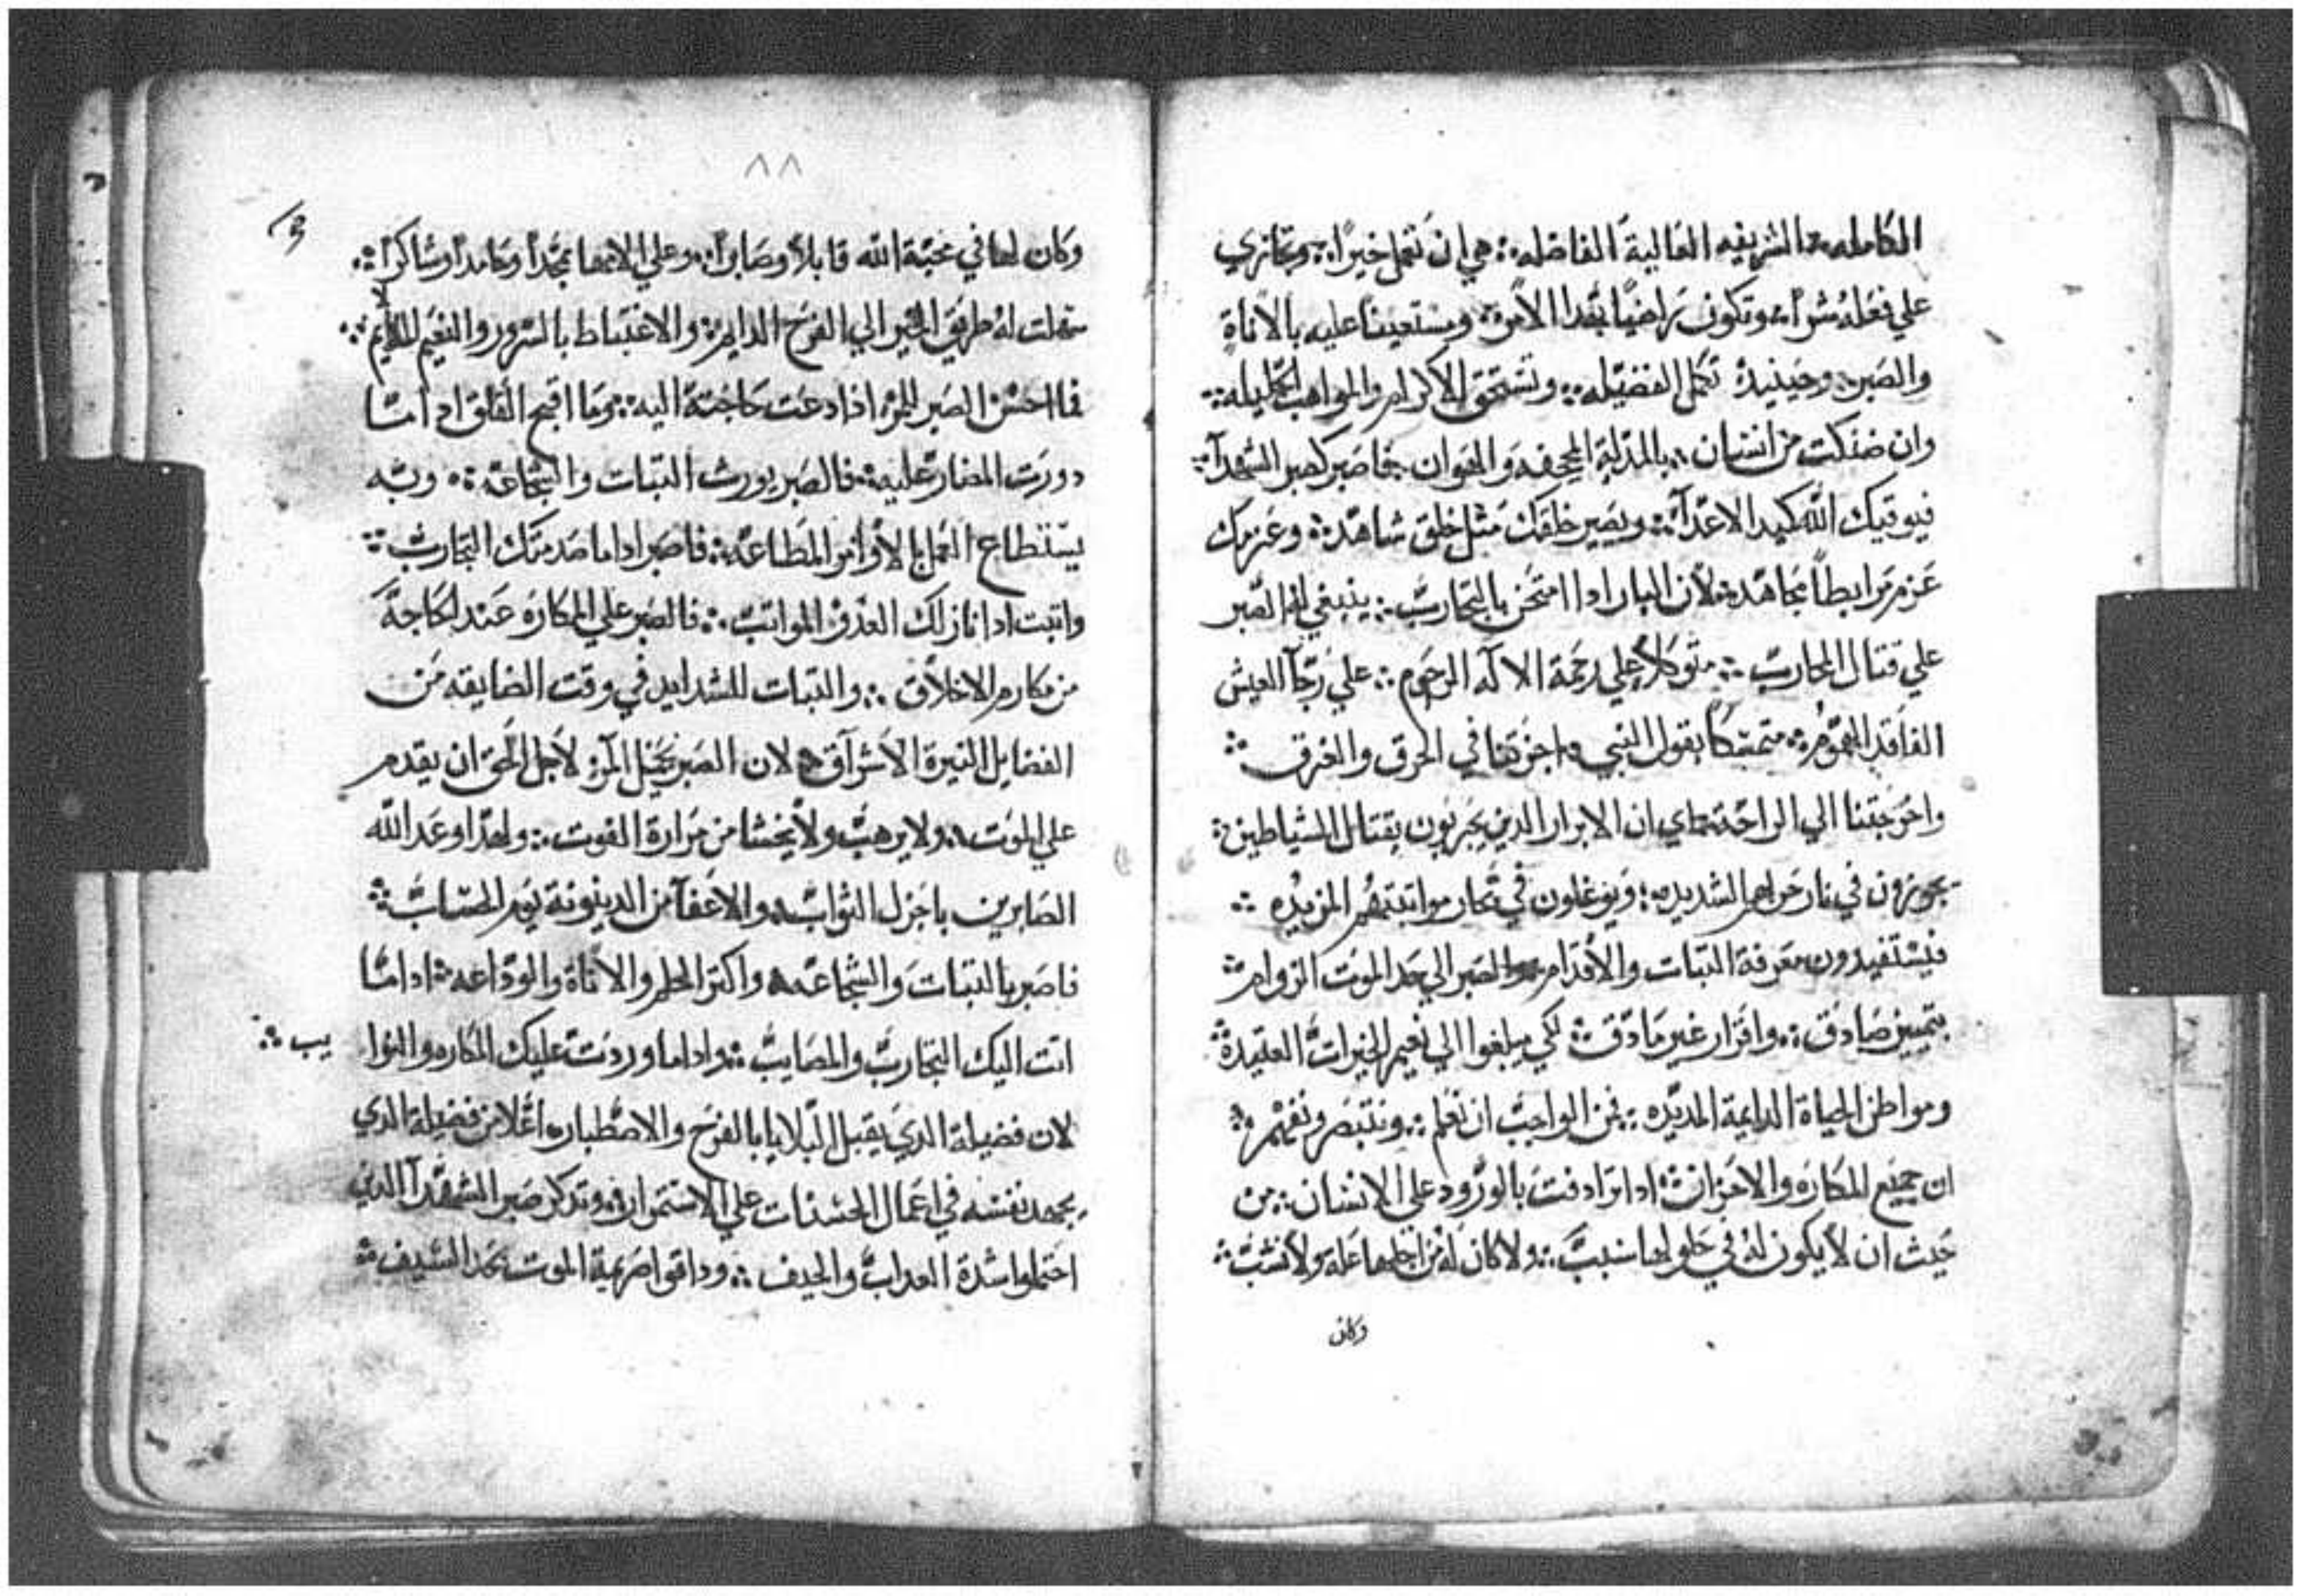 الكامله الشريفه العالية الفاضله هي ان تعمل خيراً وتجازي
علي فعله شراً وتكون راضياً بهدا الامر ومستعيناً عليه بالاناة
والصبر وحينيدٍ تكمل الفضيله وتستحق الاكرام والمواهب الجليله
وان ضنكت من انسان بالمدلة المجحفه والهوان فاصبر كصبر الشهدآ
فيوقيك الله كيد الاعدآ ويصير خلقك مثل خلق شاهد وعزمك
عزم مرابطاً مجاهد لان البار ادا امتحن بالتجارب ينبغي له الصبر
علي قتال المحارب متوكلاً علي رحمة الاله الرحوم علي رجآ العيش
الفاقد الهموم متمسكاً بقول النبي اجزتنا في الحرق والغرق
واخرجتنا الي الراحة اي ان الابرار الدين يجربون بقتال الشياطين
يجوزون في نار حراهم الشديده ويوغلون في بحار مواتبتهم المزبده
فيستفيدون معرفة التبات والاقدام والصبر الي حد الموت الزوام
بتمييز صادق واقرار غير مادق لكي يبلغوا الي نعيم الخيرات العتيدة
ومواطن الحياة الدايمة المديده فمن الواجب ان نعلم ونتبصر ونفهم
ان جميع المكاره والاحزان ادا ترادفت بالورود علي الانسان من
حيث ان لا يكون له في حلولها سبب ولا كان له من اجلها علة ولا نشب
وكان
٨٨
وكان لها في محبة الله قابلاً وصابراً وعلي الامها ممجداً وحامداً وشاكراً
سهلت له طريق الخير الي الفرح الدايم والاغتباط بالسرور والنعيم الملايم
فما احسن الصبر للمرء اذا دعت حاجته اليه وما اقبح القلق ادا ما
دورت المضار عليه فالصبر يورث التبات والشجاعة وبه
يستطاع العمل بالاوامر المطاعة فاصبر ادا ما صدمتك التجارب
واتبت ادا نازلك العدو المواتب فالصبر علي المكاره عند الحاجة
من مكارم الاخلاق والتبات للشدايد في وقت الضايقه من
الفضايل النيرة الاشراق لان الصبر يخيل المرء لاجل الحق ان يقدم
علي الموت ولا يرهب ولا يخشا من مرارة الفوت ولهدا وعد الله
الصابرين باجزل التواب والاعفآ من الدينونة يوم الحساب
فاصبر بالتبات والشجاعه واكتر الحلم والاناة والوداعه ادا ما
اتت اليك التجارب والمصايب وادا ما وردت عليك المكاره والنوا يب
لان فضيلة الدي يقبل البلايا بالفرح والاصطبار اعلا من فضيلة الدي
يجهد نفسه في اعمال الحسنات علي الاستمرار وتدكر صبر الشهدآ الدين
احتملوا شدة العداب والحيف وداقوا مريمة الموت بحد السيف